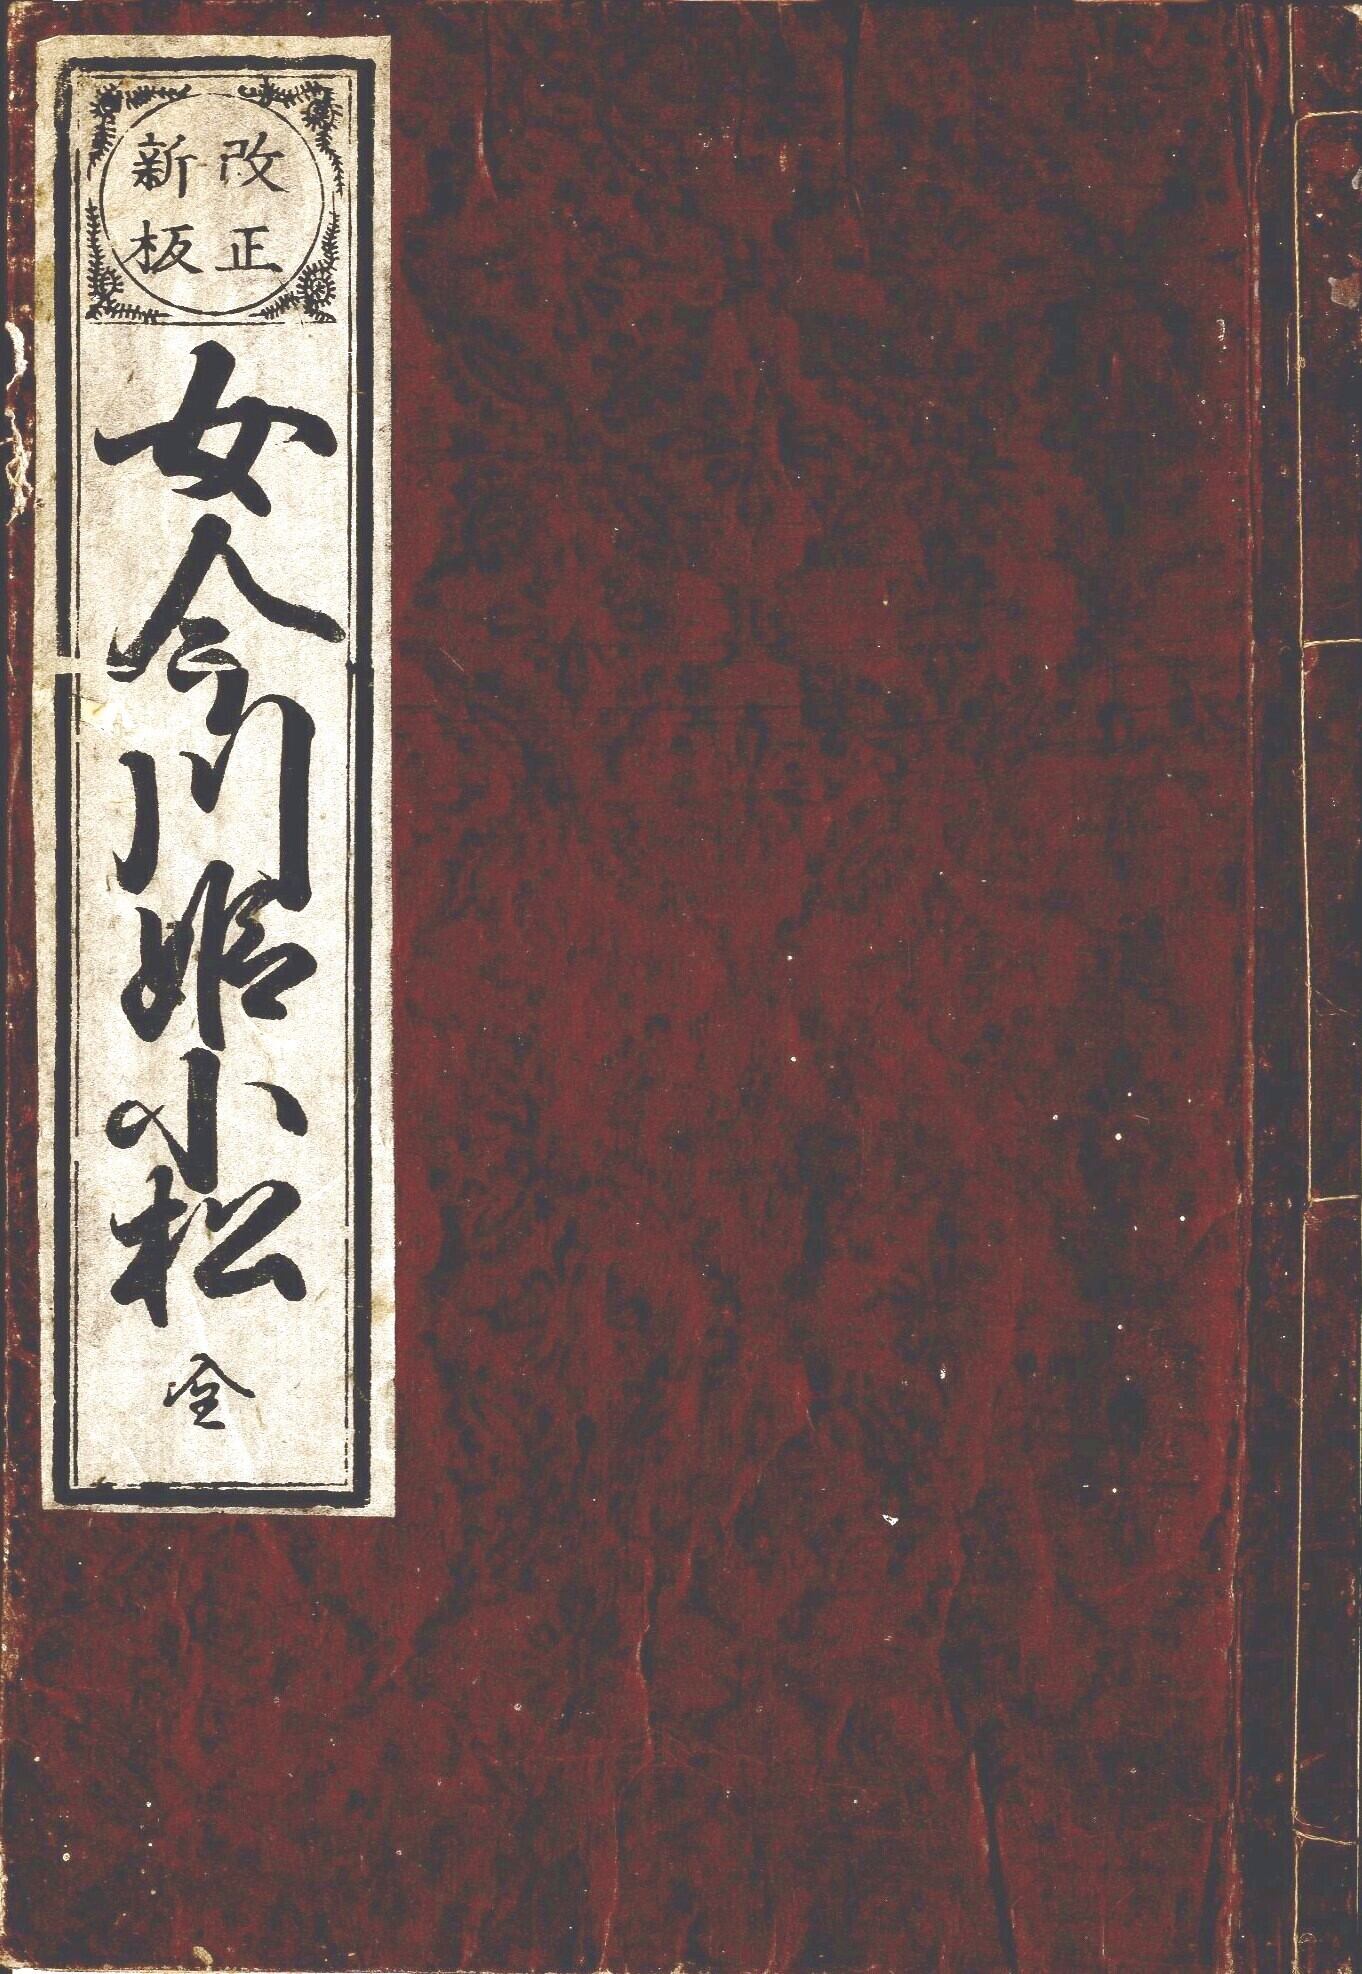 改正
新板
女今川姫小松
全